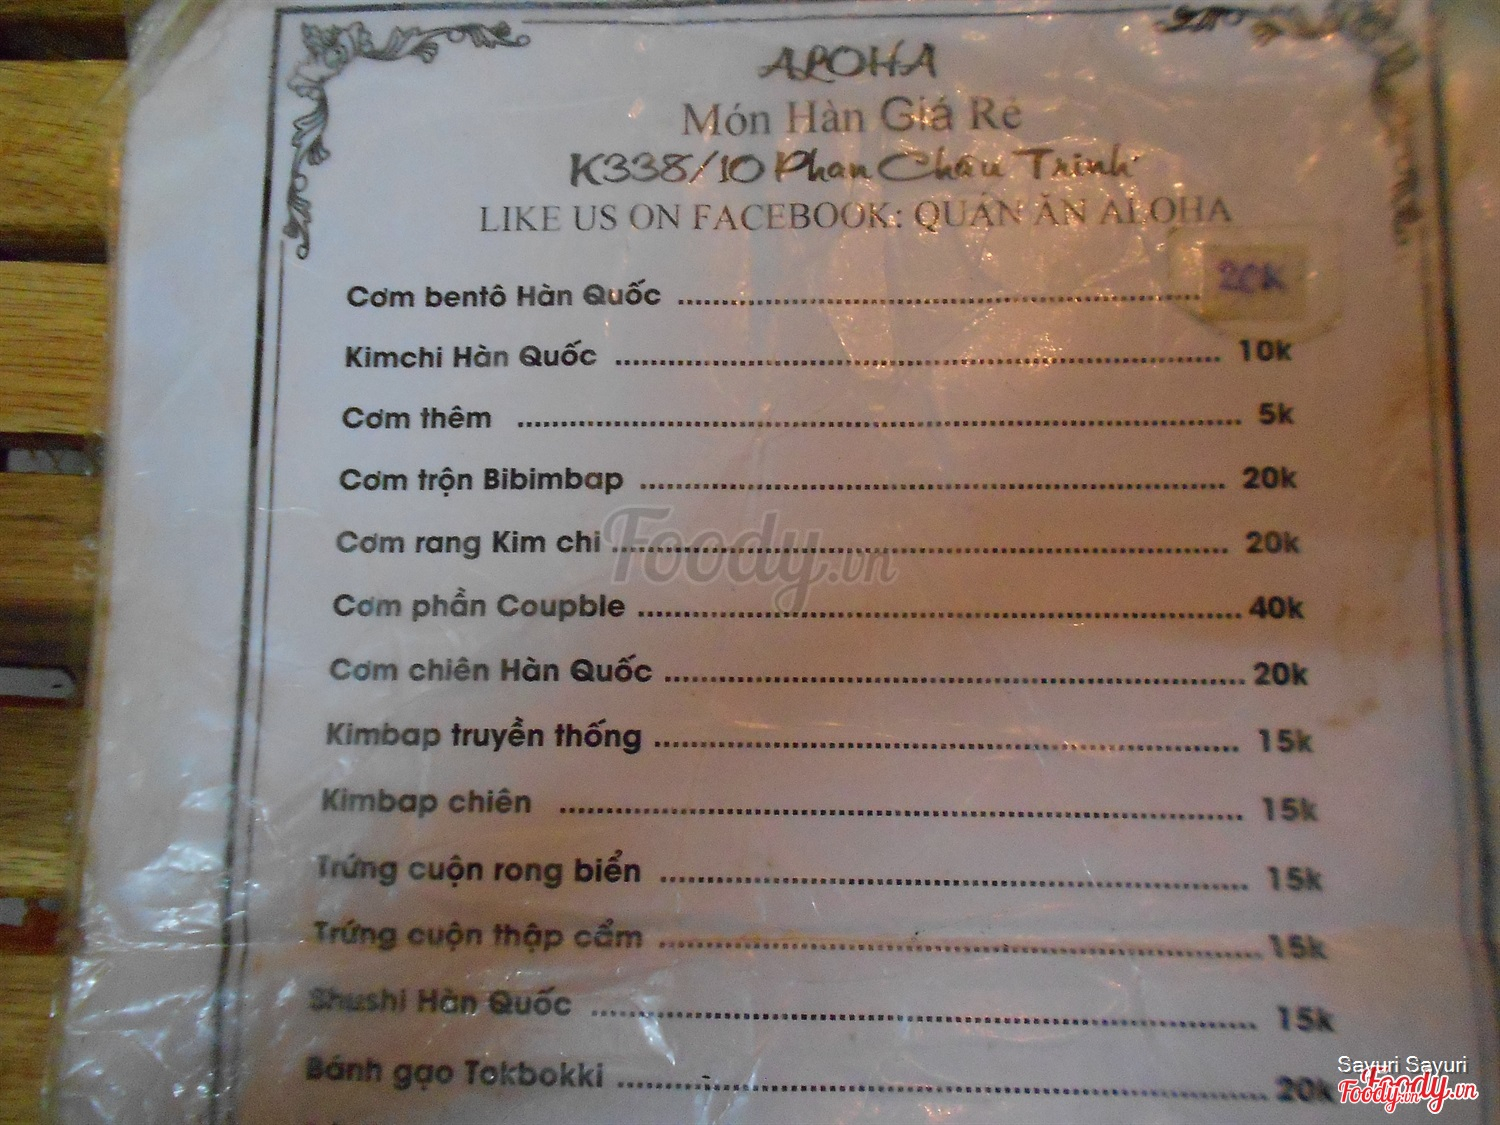 ALOHA
Món Hàn Giá Rẻ
K338/10 Phan Châu Trinh
LIKE US ON FACEBOOK: QUÁN ĂN ALOHA
Cơm bentô Hàn Quốc ........ 20k
Kimchi Hàn Quốc ........ 10k
Cơm thêm ........ 5k
Cơm trộn Bibimbap ........ 20k
Cơm rang Kim chi ........ 20k
Foody.vn
Cơm phần Coupble ........ 40k
Cơm chiên Hàn Quốc ........ 20k
Kimbap truyền thống ........ 15k
Kimbap chiên ........ 15k
Trứng cuộn rong biển ........ 15k
Trứng cuộn thập cẩm ........ 15k
Shushi Hàn Quốc ........ 15k
Bánh gạo Tokbokki ........ 20k
Sayuri Sayuri
Foody.vn
Foody.vn